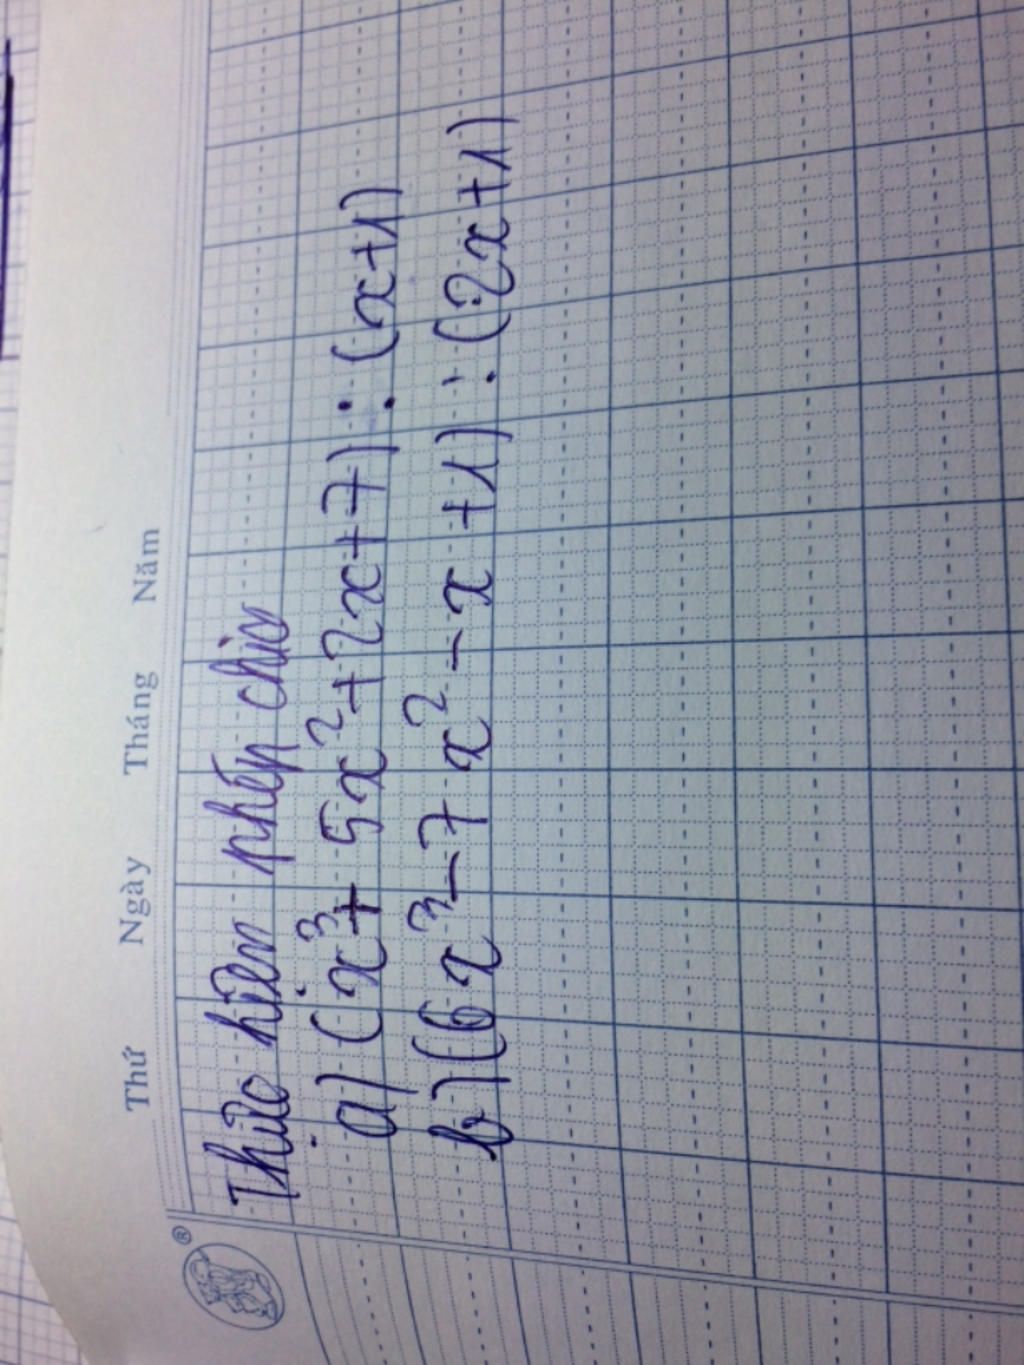 Thứ Ngày Tháng Năm
®
Thực hiện phép chia
a) (x³ + 5x² + 2x + 7) : (x+1)
b) (6x³ - 7x² - x + 1) : (2x+1)